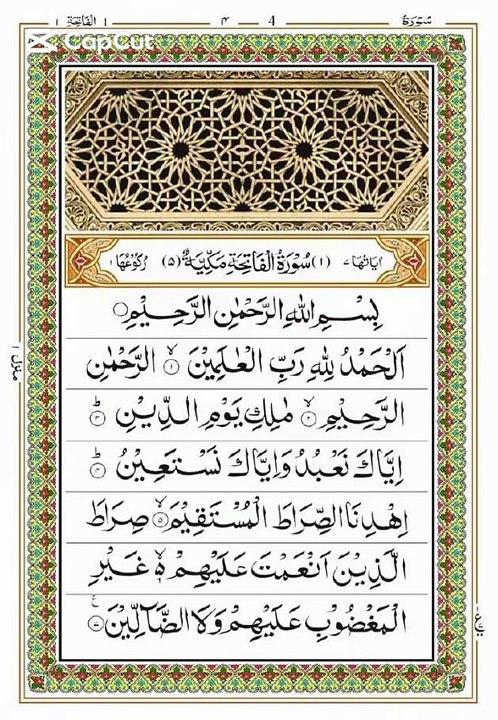 سُوۡرَةُ ۴ 4 ١ الۡفَاتِحَة ١
CapCut
اٰيَاتُهَا ٧ (١) سُوۡرَةُ الۡفَاتِحَةِ مَكِّيَّةٌ (٥) رُكُوۡعُهَا ١
بِسۡمِ اللّٰهِ الرَّحۡمٰنِ الرَّحِيۡمِ
اَلۡحَمۡدُ لِلّٰهِ رَبِّ الۡعٰلَمِيۡنَ ۙ‏﴿۱﴾ الرَّحۡمٰنِ
الرَّحِيۡمِ ۙ‏﴿۲﴾ مٰلِكِ يَوۡمِ الدِّيۡنِ ؕ‏﴿۳﴾
اِيَّاكَ نَعۡبُدُ وَاِيَّاكَ نَسۡتَعِيۡنُ ؕ‏﴿۴﴾
اِهۡدِنَا الصِّرَاطَ الۡمُسۡتَقِيۡمَ ۙ‏﴿۵﴾ صِرَاطَ
الَّذِيۡنَ اَنۡعَمۡتَ عَلَيۡهِمۡ ۙ۬ ‏﴿۶﴾ غَيۡرِ
الۡمَغۡضُوۡبِ عَلَيۡهِمۡ وَلَا الضَّآلِّيۡنَ‏﴿۷﴾
منزل ١